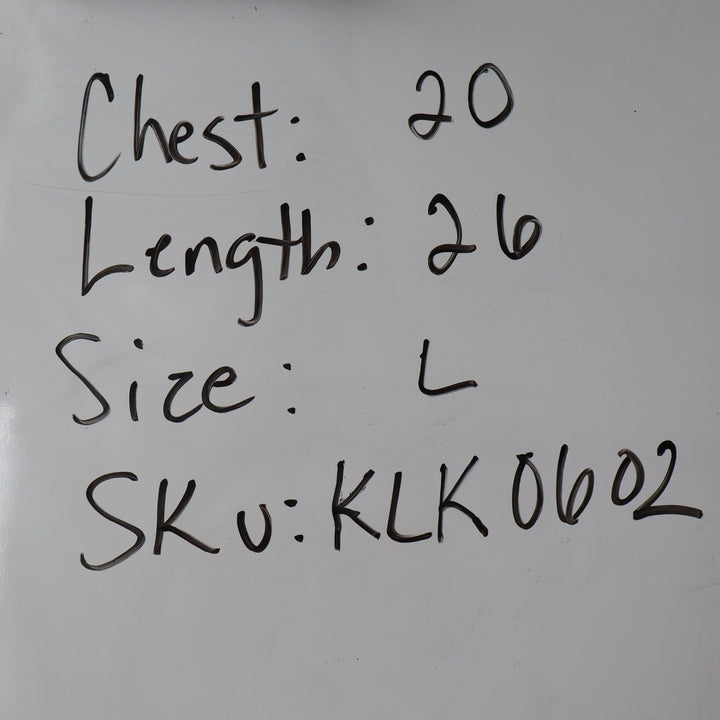 Chest: 20
Length: 26
Size: L
SKU: KLK0602